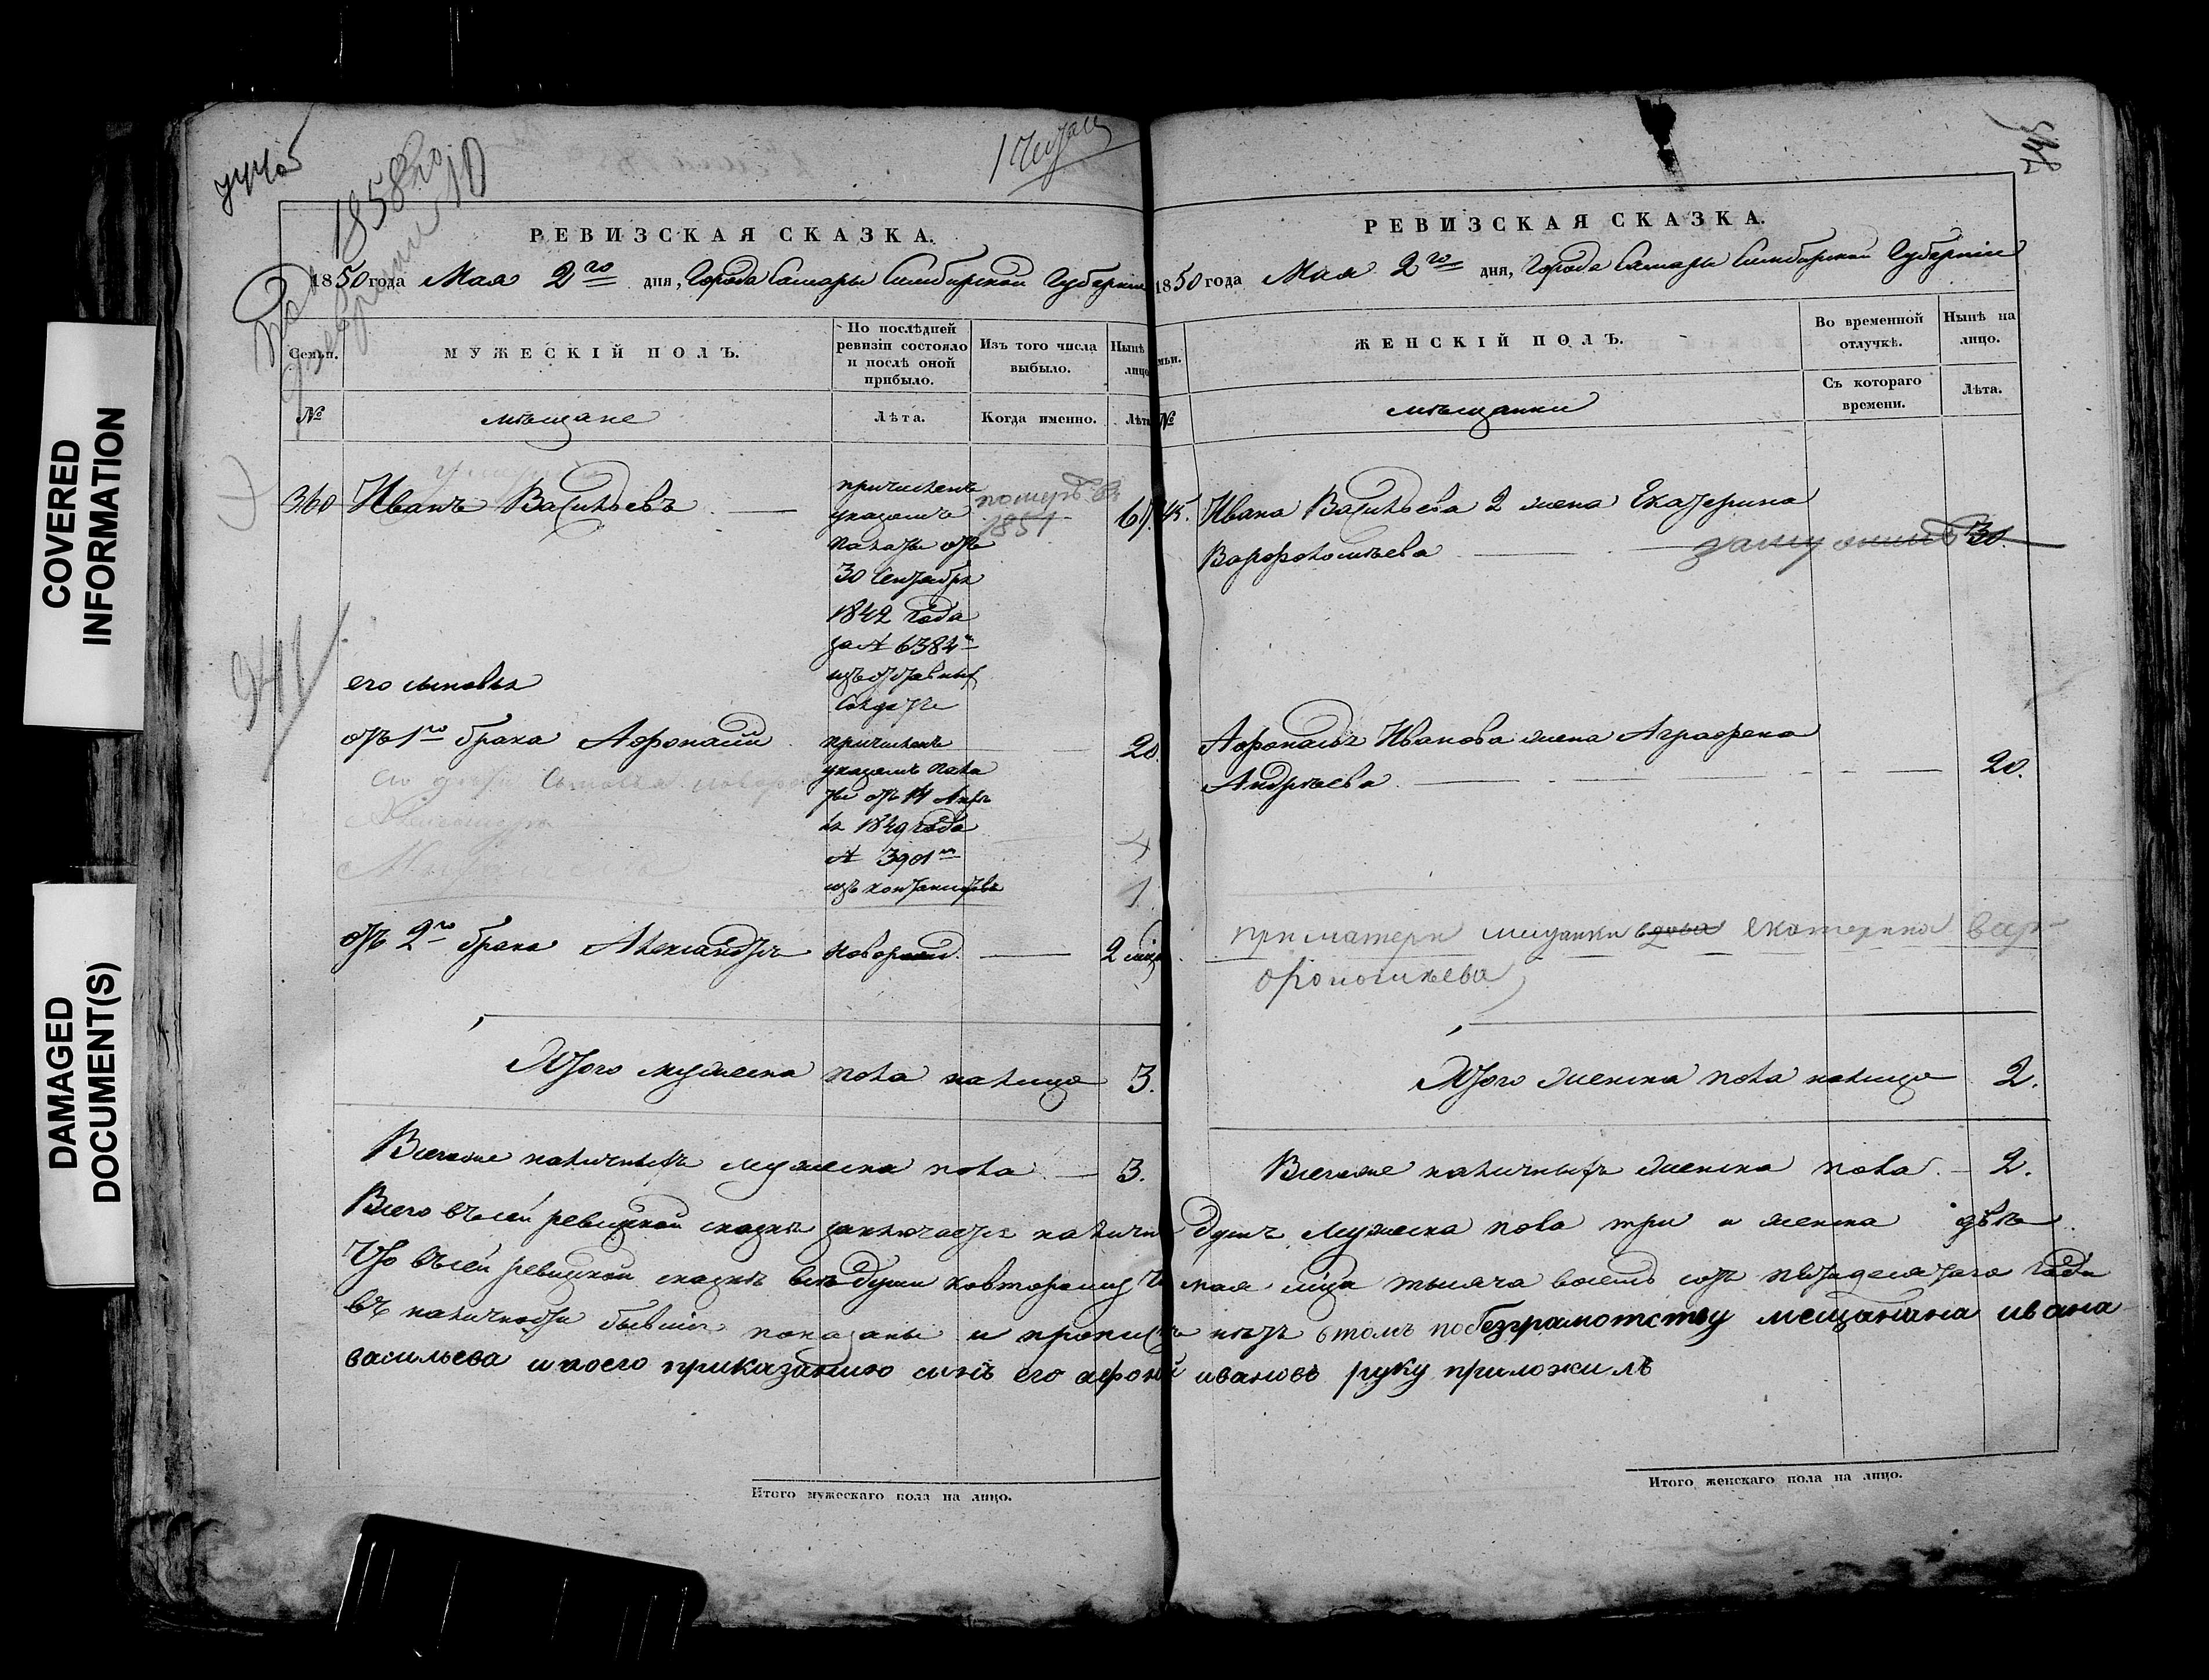 COVERED
INFORMATION
DAMAGED
DOCUMENT(S)
1858го
10
РЕВИЗСКАЯ СКАЗКА.
1850 года Мая 2го дня, Города Самары Симбирской Губернии
Семьи.
МУЖЕСКІЙ ПОЛЪ.
По послѣдней ревизіи состояло и послѣ оной прибыло.
Изъ того числа выбыло.
Нынѣ
лицо
№
мѣщане
Лѣта.
Когда именно.
Лѣта
360 Иванъ Васильевъ
причисленъ
указомъ
палаты отъ
30 Сентября
1842 года
за № 6384м
изъ отставных
Солдатъ
померъ въ
1851
его сыновья
отъ 1го брака Афонасий
20.
причисленъ
указомъ пала
ты отъ 14 Апрѣ
ля 1849 года
№ 3901м
изъ кантонистовъ
отъ 2го брака Александръ новорожд. 2 мѣс
Итого мужеска пола налицо 3.
Всегоже наличныхъ мужеска пола 3.
РЕВИЗСКАЯ СКАЗКА.
1850 года Мая 2го дня, Города Самары Симбирской Губерніи
мьи.
ЖЕНСКІЙ ПОЛЪ.
Во временной отлучкѣ.
Нынѣ на лицо.
Съ котораго времени.
Лѣта.
№
мѣщанки
Ивана Васильева 2 жена Екатерина
Варфоломѣева замужемъ 30.
Афонасья Иванова жена Аграфена
Андрѣева 20.
при матери мещанки вдова екатерина вар
фоломѣева
Итого женска пола налицо 2.
Всегоже наличныхъ женска пола. 2.
Всего въ сей ревизской сказкѣ заключается наличн душъ мужеска пола три и женска двѣ
Что въ сей ревизской сказкѣ всѣ души ковторому ч мая мца тысяча восемь сотъ пятидесятаго года
въ наличности бывшіе показаны и прописн нѣтъ втомъ побезграмотству мещанина ивана
васильева ипоего приказанию сынъ его афони ивановъ руку приложилъ
Итого мужескаго пола на лицо.
Итого женскаго пола на лицо.